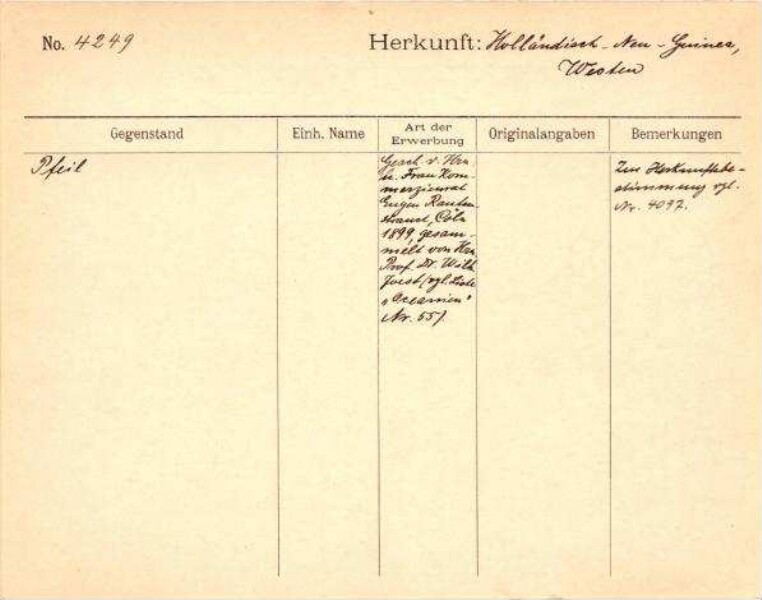 No. 4249
Herkunft: Holländisch-Neu-Guinea,
Westen
Gegenstand
Einh. Name
Art der
Erwerbung
Originalangaben
Bemerkungen
Pfeil
Gesch. v. Hrn
u. Frau Kom-
merzienrat
Eugen Rauten-
strauch, Cöln
1899, gesam-
melt von Hrn
Prof. Dr. Wilh.
Joest (vgl. Liste
"Oceanien"
Nr. 55).
Zur Herkunftsbe-
stimmung vgl.
Nr. 4097.